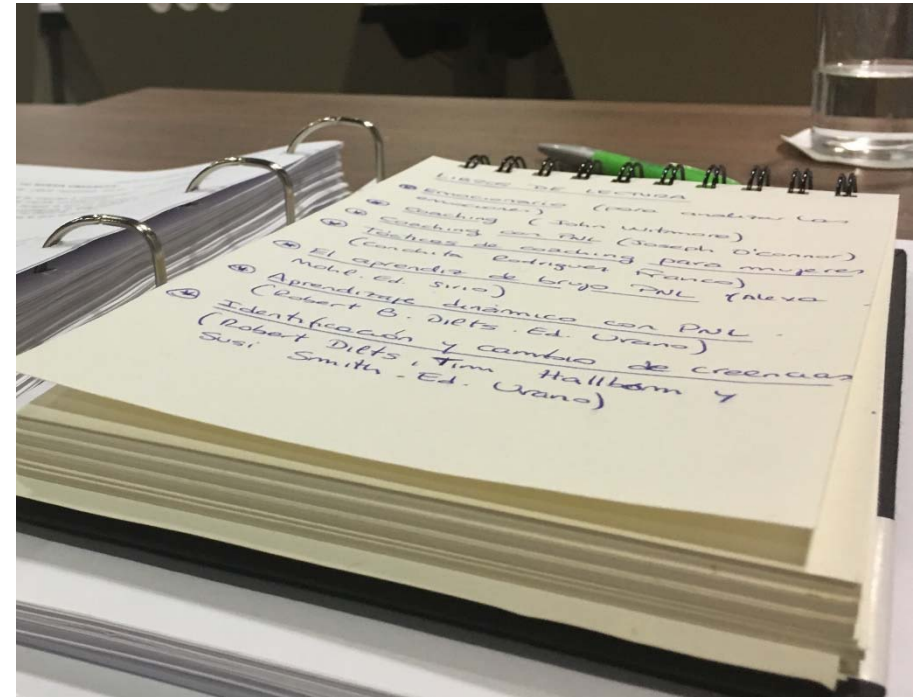 LIBROS DE LECTURA
Emocionario (para analizar las
emociones)
Coaching (John Witmore)
Coaching con PNL (Joseph O'connor)
Técnicas de coaching para mujeres
(Conchita Rodríguez Franco)
El aprendiz de brujo PNL (Alexa
Mohl. Ed. Sirio)
Aprendizaje dinámico con PNL.
(Robert B. Dilts. Ed. Urano)
Identificación y cambio de creencias
(Robert Dilts, Tim Hallbom y
Susi Smith. Ed. Urano)